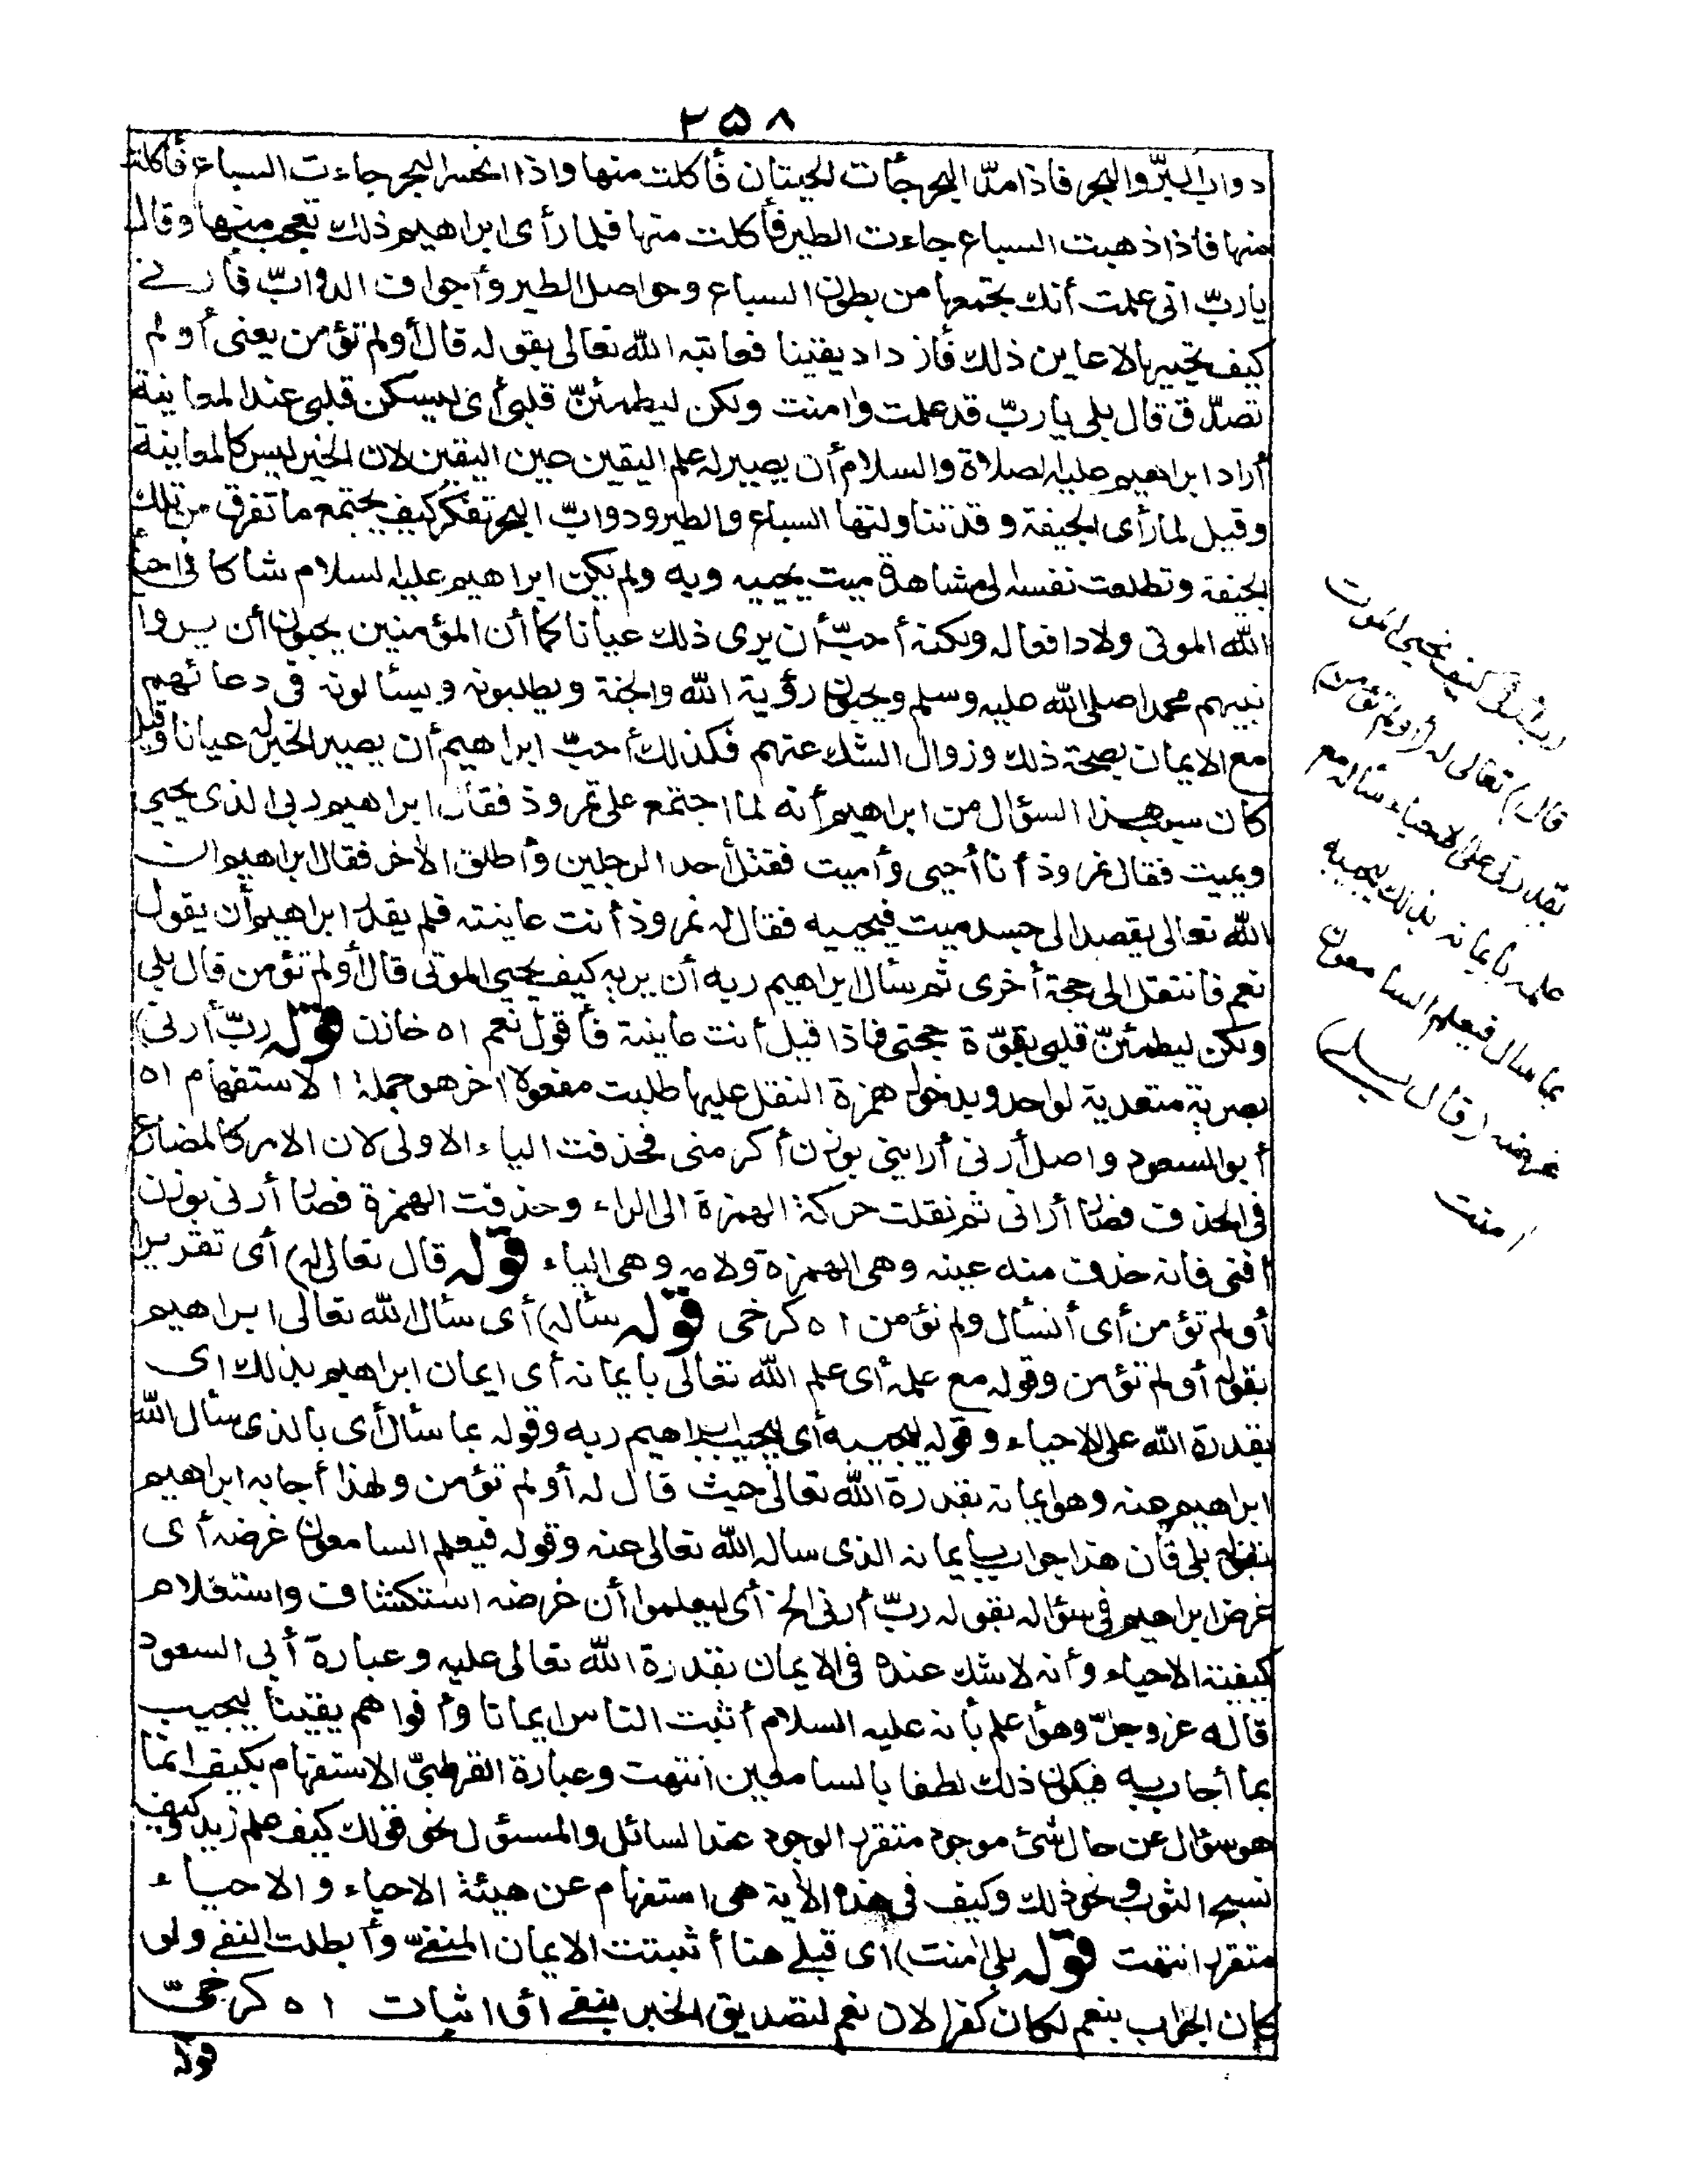 ٢٥٨
دواب البرّ والبحر فاذا مدّ البحر جأت الحيتان فأكلت منها واذا انحسر البحر جاءت السباع فأكلت
منها فاذا ذهبت السباع جاءت الطير فأكلت منها فلما رأى ابراهيم ذلك تعجب منها وقال
يا ربّ انى علمت أنك تجمعها من بطون السباع وحواصل الطير وأجواف الدوابّ فأرنى
كيف تحييها لاعاين ذلك فأزداد يقينا فعاتبه الله تعالى بقوله قال أولم تؤمن يعنى أولم
تصدّق قال بلى يا ربّ قد علمت وامنت ولكن ليطمئنّ قلبى أى ليسكن قلبى عند المعاينة
أراد ابراهيم عليه الصلاة والسلام أن يصير له علم اليقين عين اليقين لان الخبر ليس كالمعاينة
وقيل لما رأى الجيفة وقد تناولتها السباع والطير ودوابّ البحر تفكر كيف يجتمع ما تفرق من تلك
الجيفة وتطلعت نفسه الى مشاهدة ميت يحييه ربه ولم يكن ابراهيم عليه السلام شاكا فى احيأ
الله الموتى ولا دافعا له ولكنه أحبّ أن يرى ذلك عيانا كما أن المؤمنين يحبون أن يروا
نبيهم محمدا صلى الله عليه وسلم ويحبون رؤية الله والجنة ويطلبونه ويسألونه فى دعائهم
مع الايمان بصحة ذلك وزوال الشك عنهم فكذلك أحبّ ابراهيم أن يصير الخبر له عيانا وقيل
كان سبب هذا السؤال من ابراهيم أنه لما اجتمع على نمروذ فقال ابراهيم ربى الذى يحيى
ويميت فقال نمروذ أنا أحيى وأميت فقتل أحد الرجلين وأطلق الأخر فقال ابراهيم ان
الله تعالى يقصد الى جسد ميت فيحييه فقال له نمروذ أنت عاينته فلم يقدر ابراهيم أن يقول
نعم فانتقل الى حجة أخرى ثم سأل ابراهيم ربه أن يريه كيف يحيى الموتى قال أولم تؤمن قال بلى
ولكن ليطمئنّ قلبى بقوّة حجتى فاذا قيل أنت عاينته فأقول نعم اه خازن قوله ربّ أرنى)
بصرية متعدية لواحد وبدخول همزة النقل عليها طلبت مفعولا اخر هو جملة الاستفهام اه
أبو السعود واصل أرنى أرايني بوزن أكرمنى فحذفت الياء الاولى لان الامر كالمضارع
فى الحذف فصار أرانى ثم نقلت حركة الهمزة الى الراء وحذفت الهمزة فصار أرنى بوزن
افنى فانه حذف منه عينه وهى الهمزة ولامه وهى الياء قوله قال تعالى له) أى تقريرا
أولم تؤمن أى أتسأل ولم تؤمن اه كرخى قوله سأله) أى سأل الله تعالى ابراهيم
بقوله أولم تؤمن وقوله مع علمه أى علم الله تعالى بايمانه أى ايمان ابراهيم بذلك اى
بقدرة الله على الاحياء وقوله ليجيبه أى ليجيب ابراهيم ربه وقوله بما سأل أى بالذى سأل الله
ابراهيم عنه وهو ايمانه بقدرة الله تعالى حيث قال له أولم تؤمن ولهذا أجابه ابراهيم
بقوله بلى فان هذا جواب بايمانه الذى ساله الله تعالى عنه وقوله فيعلم السامعون غرضه أى
غرض ابراهيم فى سؤاله بقوله ربّ أرنى الخ أى ليعلموا أن غرضه استكشاف واستعلام
كيفية الاحياء وأنه لا شك عنده فى الايمان بقدرة الله تعالى عليه وعبارة أبى السعود
قاله عز وجلّ وهو أعلم بأنه عليه السلام أثبت الناس ايمانا وأقواهم يقينا ليجيب
بما أجاب به فيكون ذلك لطفا بالسامعين انتهت وعبارة القرطبىّ الاستفهام بكيف انما
هو سؤال عن حال شئ موجود متقرر الوجود عند السائل والمسئول نحو قولك كيف علم زيد وكيف
نسج الثوب ونحو ذلك وكيف فى هذه الأية هى استفهام عن هيئة الاحياء والاحياء
متقرر انتهت قوله بلى امنت) اى قبلى هنا أثبتت الايمان المنفىّ وأبطلت النفى ولو
كان الجواب بنعم لكان كفرا لان نعم لتصديق الخبر بنفى أو اثبات اه كرخىّ
قوله
رب أرنى كيف تحيى الموت
قال) تعالى له (أولم تؤمن)
بقدرتى على الاحياء سأله مع
علمه بايمانه بذلك ليجيبه
بما سال فيعلم السامعون
غرضه (قال بلى)
امنت